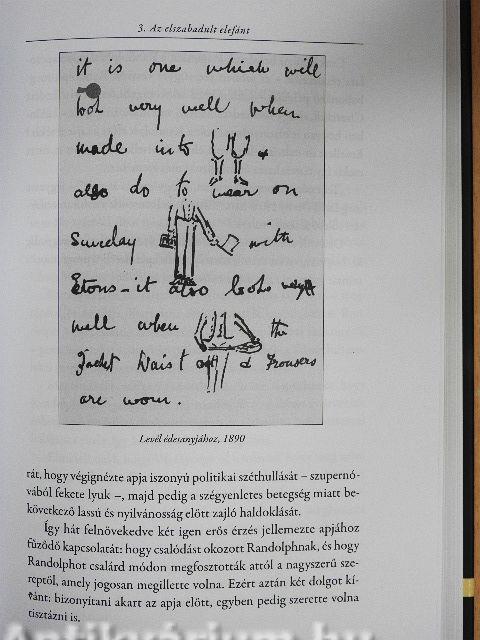 3. Az elszabadult elefánt
it is one which will
look very well when
made into
also do to wear on
Sunday with
Etons - it also looks very
well when the
Jacket Waist & Trousers
are worn.
Levél édesanyjához, 1890
rát, hogy végignézte apja iszonyú politikai széthullását – szupernó-
vából fekete lyuk –, majd pedig a szégyenletes betegség miatt be-
következő lassú és nyilvánosság előtt zajló haldoklását.
Így hát felnövekedve két igen erős érzés jellemezte apjához
fűződő kapcsolatát: hogy csalódást okozott Randolphnak, és hogy
Randolphot csalárd módon megfosztották attól a nagyszerű sze-
reptől, amely jogosan megillette volna. Ezért aztán két dolgot kí-
vánt: bizonyítani akart az apja előtt, egyben pedig szerette volna
tisztázni is.
Antikvárium.hu